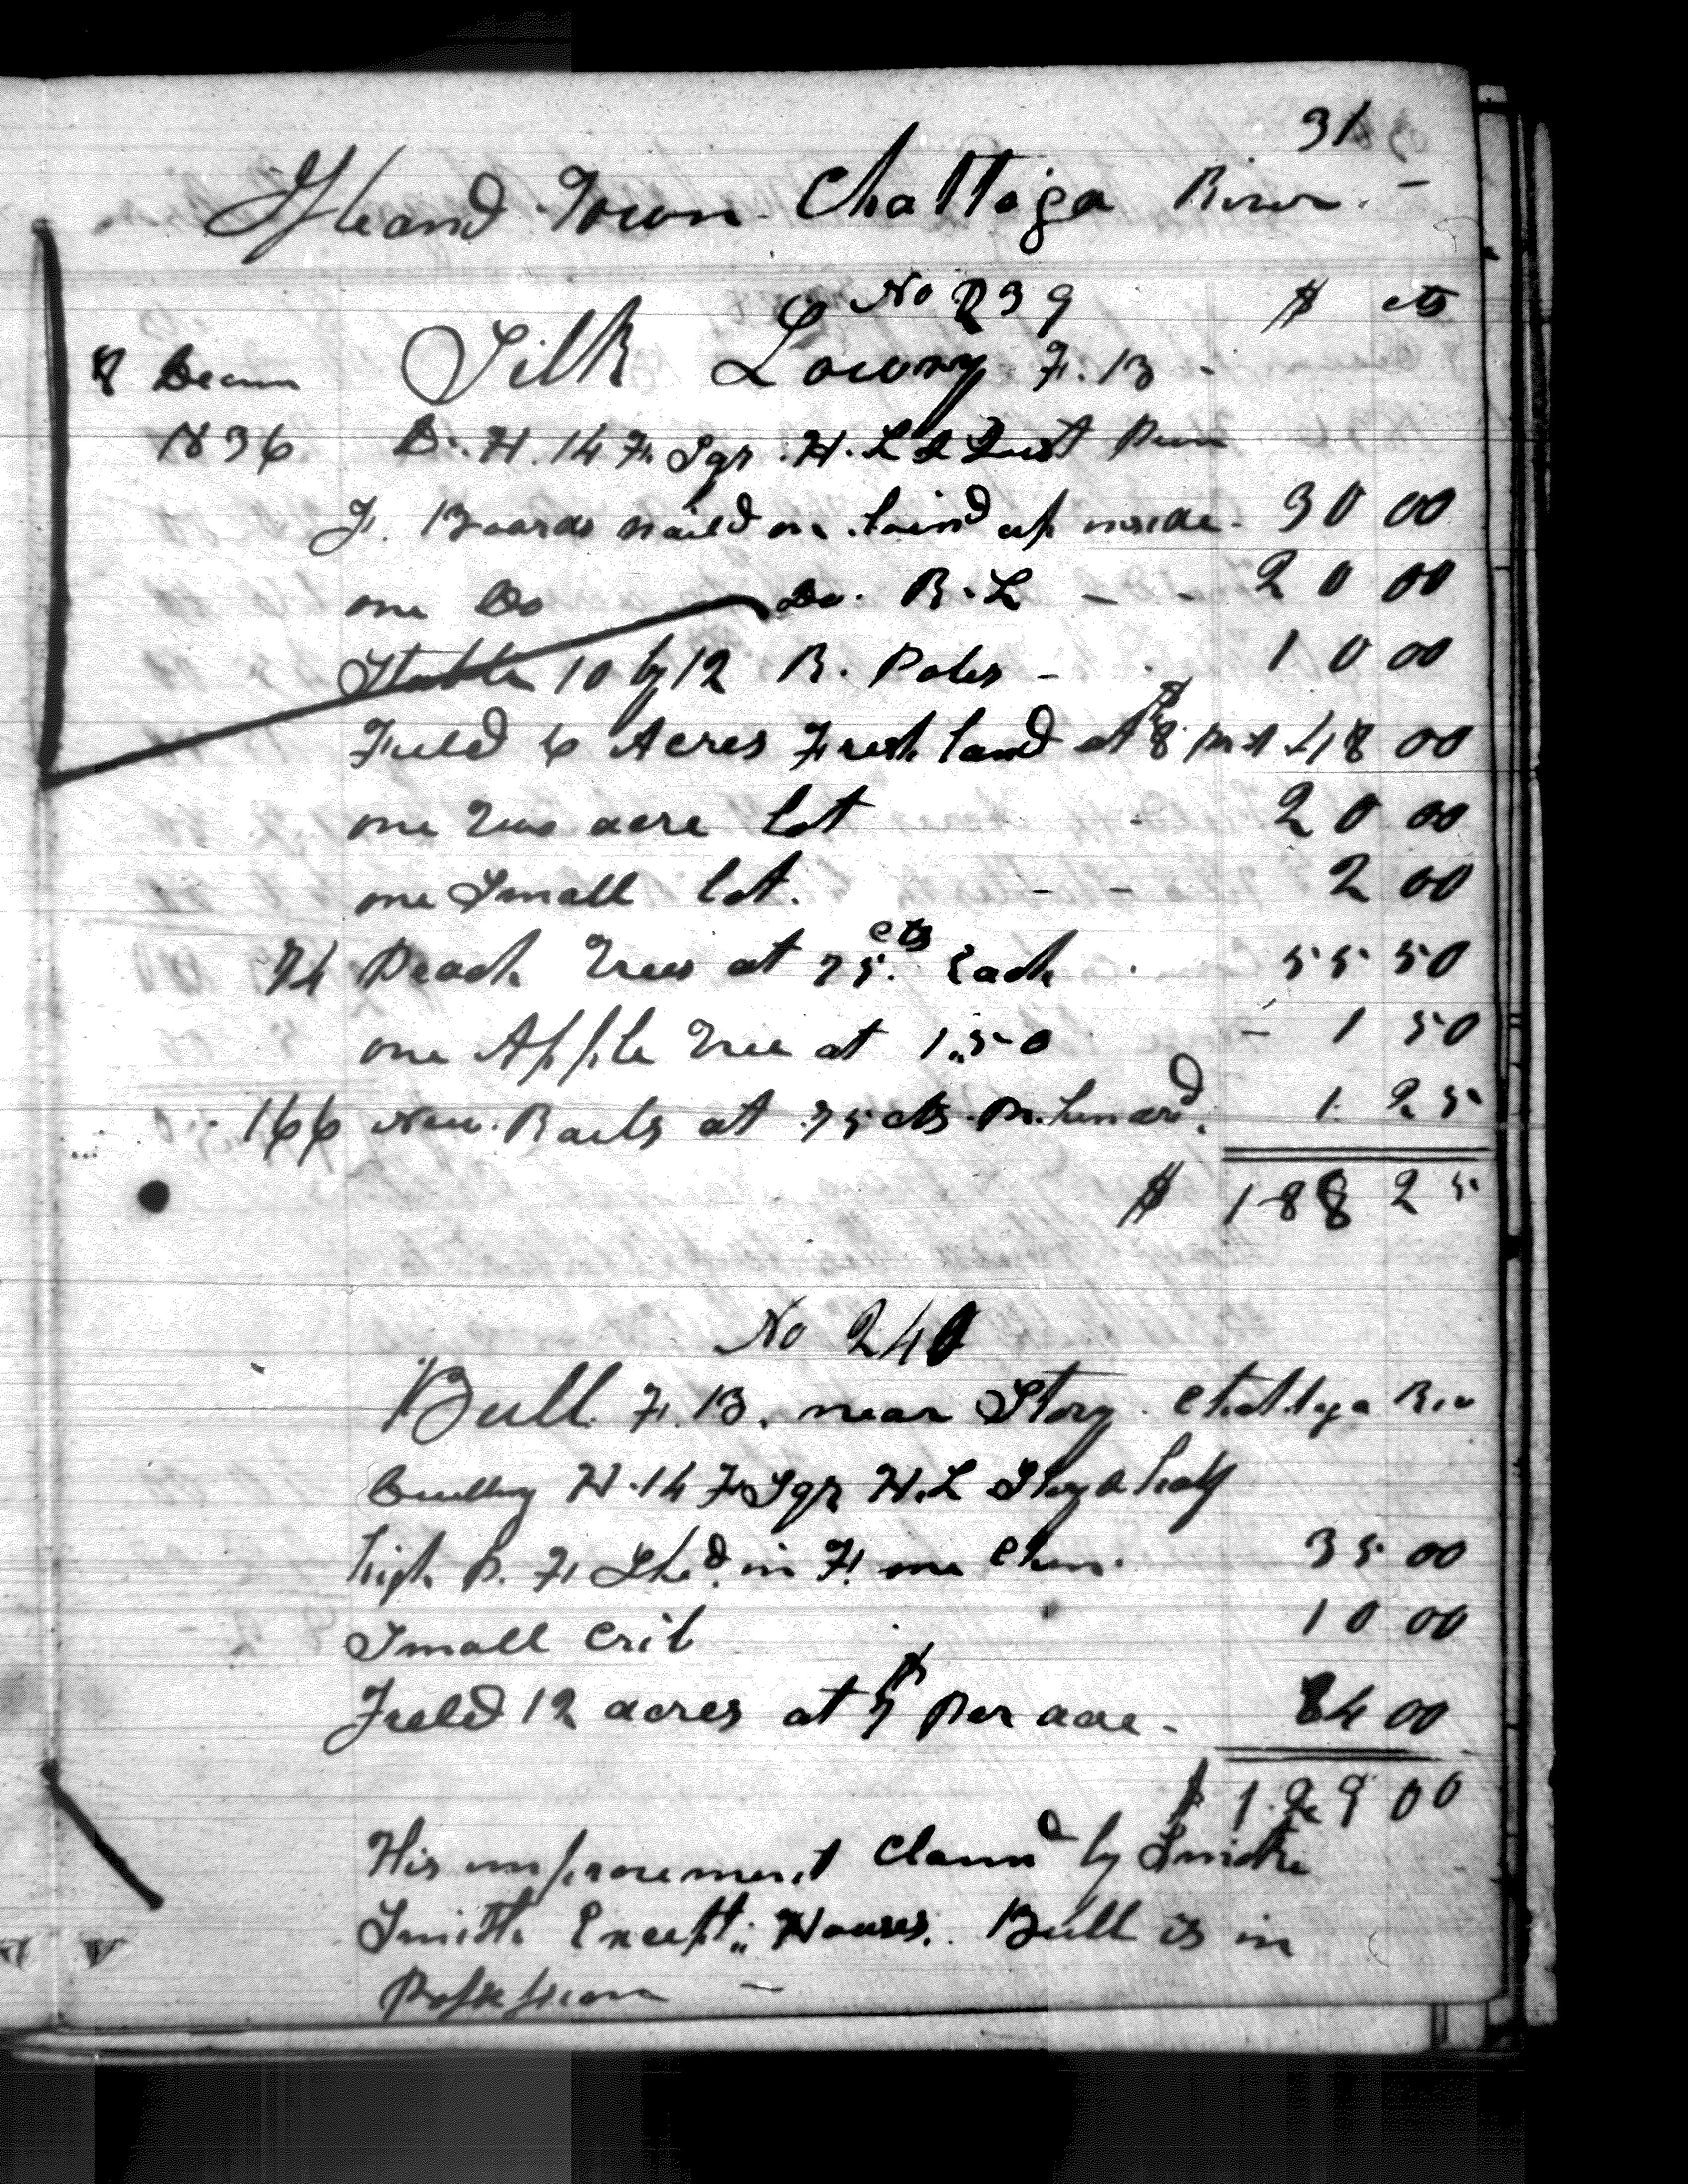 31
Island Town Chattoga River. -
No 239 $ cts
8 Decem Silk Lowry F. B -
1836 D. H. 14 F. Sqr. H. L Pun
F. Boards naild on. up inside - 30 00
one Do Do. R. L - - 20 00
Stable 10 by 12 R. Poles - 10 00
Field 6 Acres Fresh land at $8 pr A 48 00
one Two acre lot - 20 00
one Small lot. - - 2 00
74 Peach Trees at 75 cts Each 55 50
one Apple Tree at 1.50 - 1 50
166 New Rails at 75 cts Pr. hundrd. 1. 25
$ 188 25
No 240
Bull F. B. near Story Chattoga Riv
H. 14 F Sqr H. L Story & half
high P. F Shd. in F. one Chim. 35 00
Small Crib 10 00
Field 12 acres at $7 Per acre - 84 00
$ 129 00
His improvement Claimd by
Smith Except Houses. Bull is in
Possession -